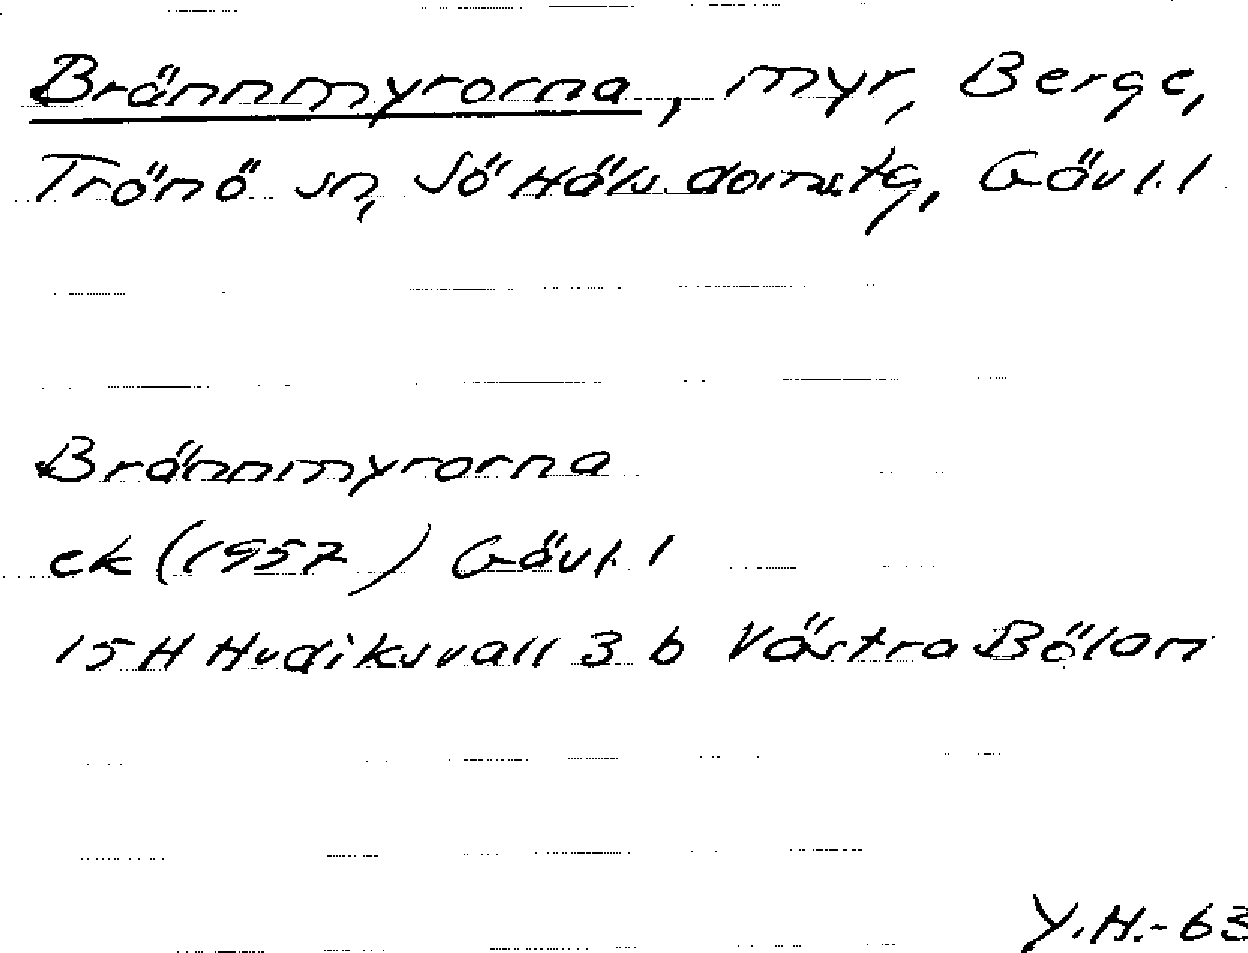 Brännmyrorna, myr, Berge,
Trönö sn, Sö Häls. domstg, Gävl. l
Brännmyrorna
ek (1957) Gävl. l
15 H Hudiksvall 3 b Västra Bölan
Y.H.-63